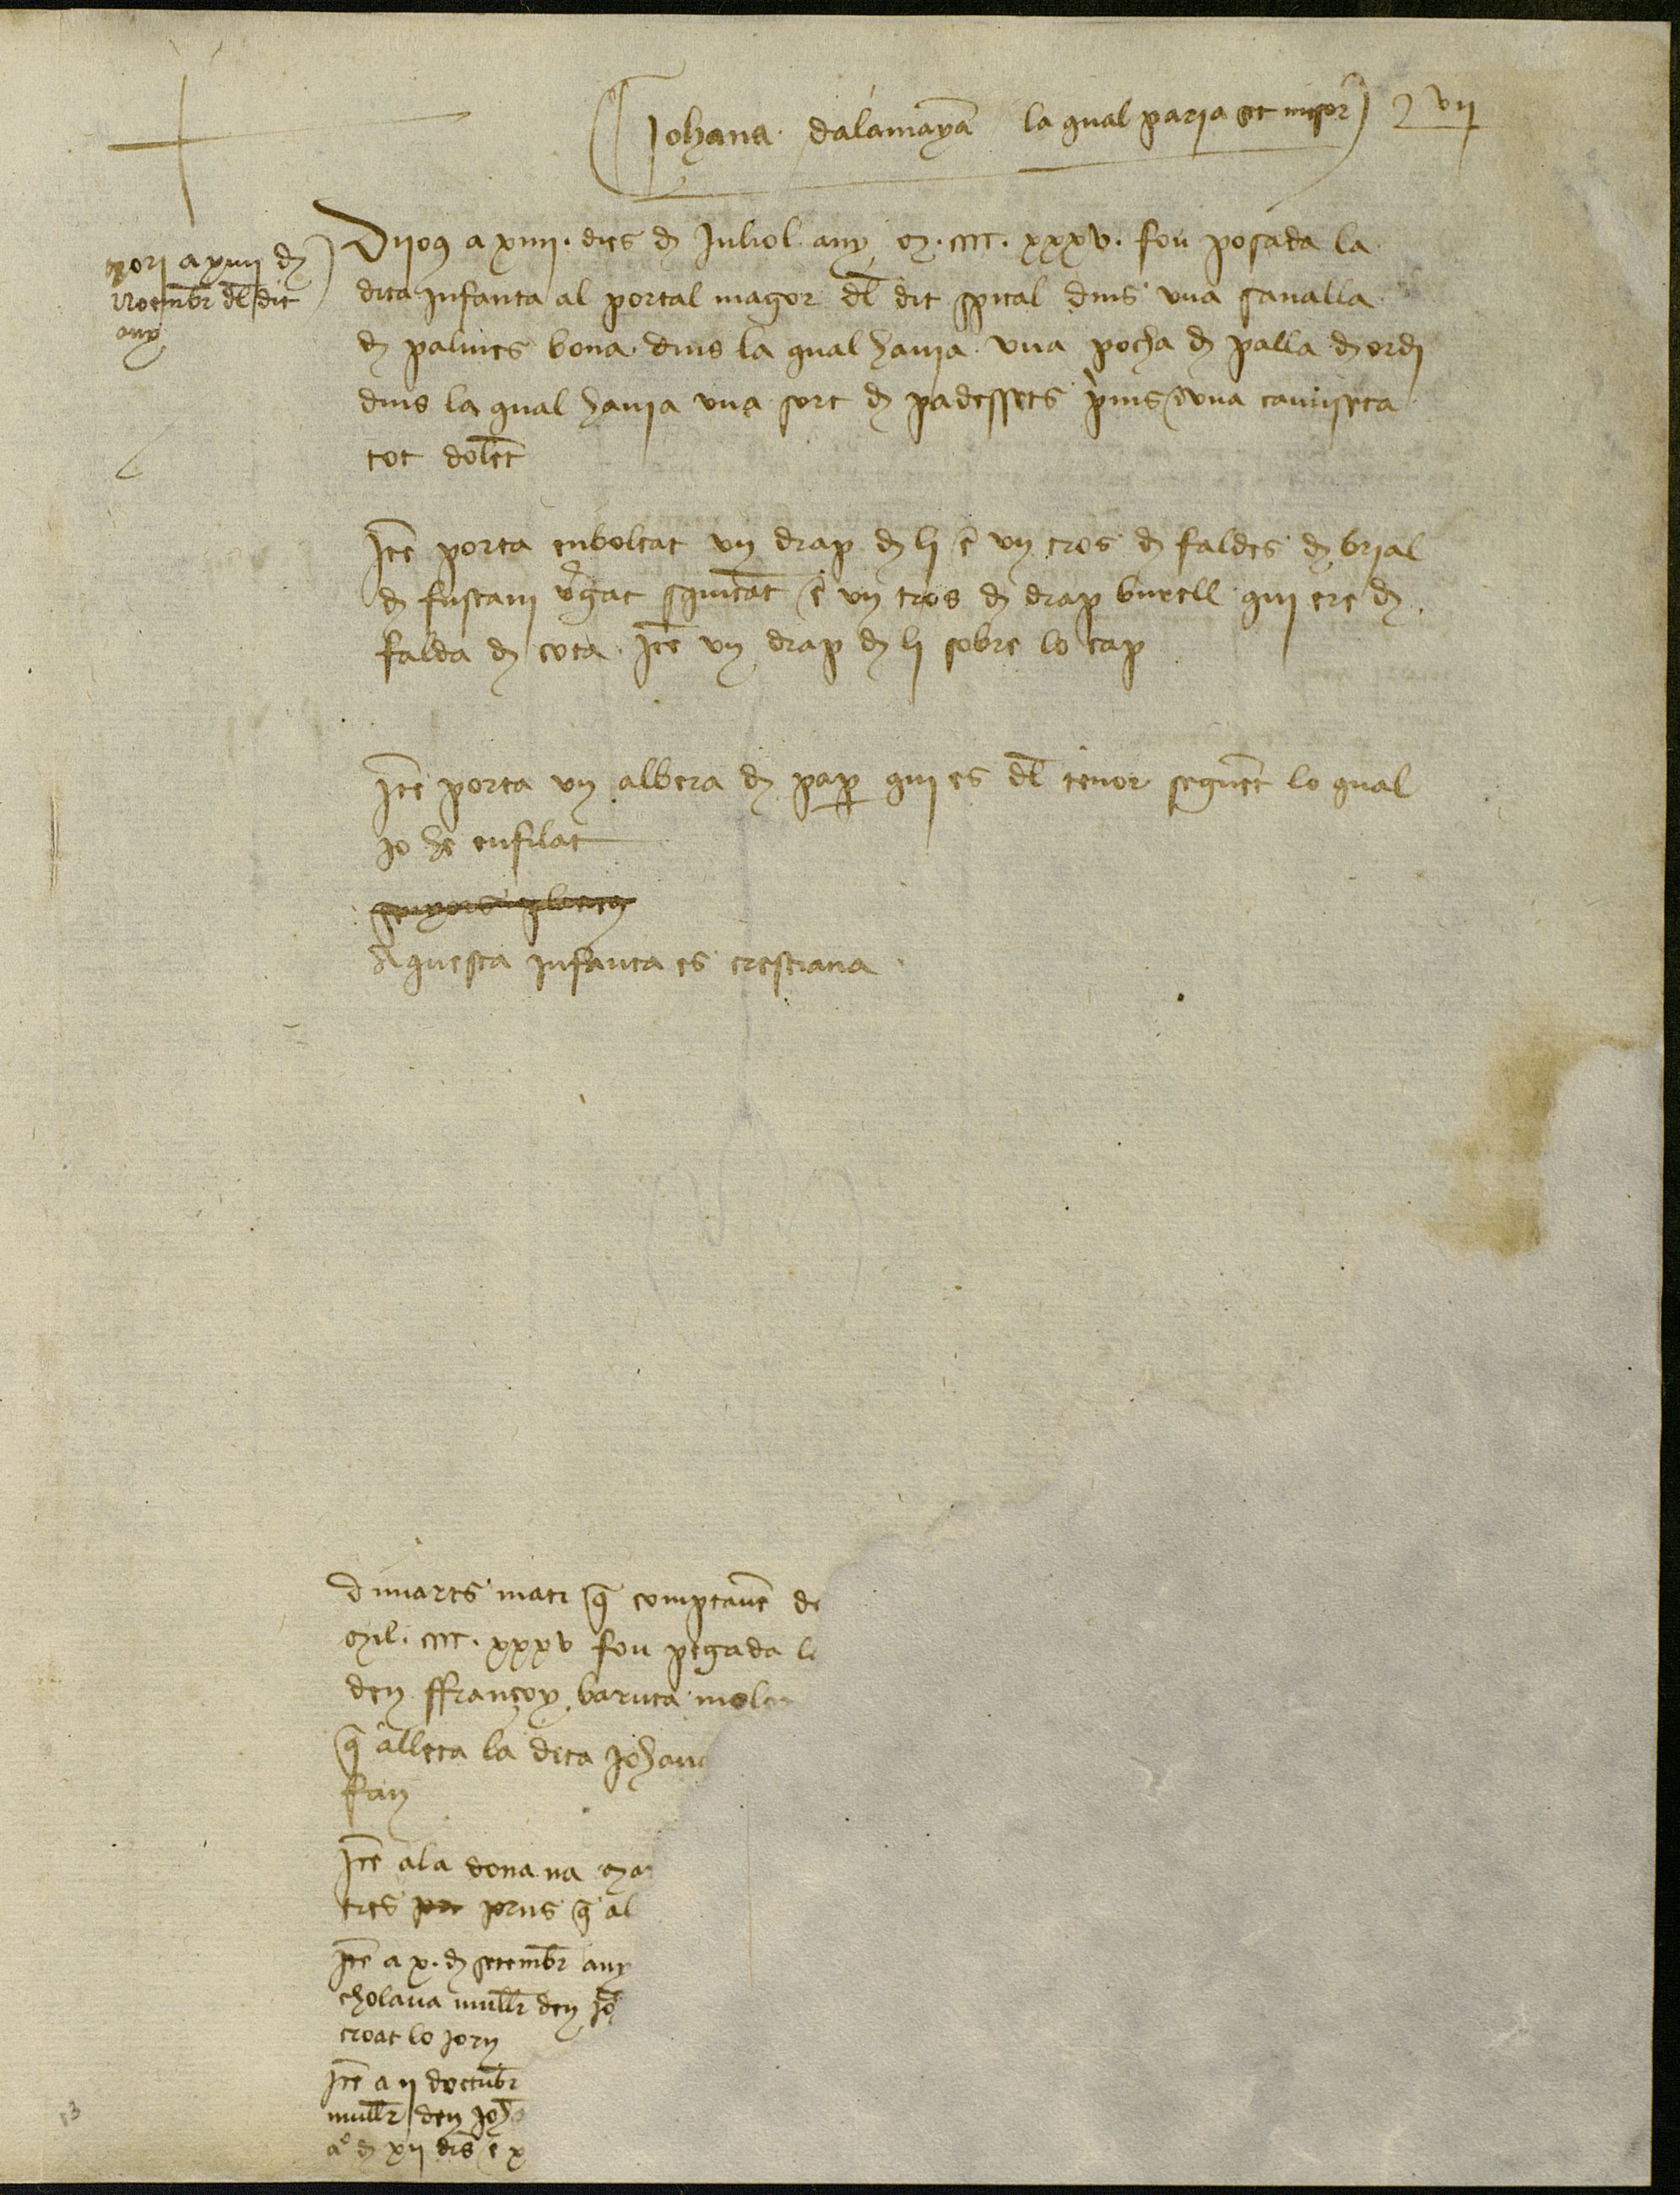 Johana dalamaya la qual paria vii
mori a xiiii de
Noembr del dit
any
Dijous a xiiii dies de Juliol any M cccc xxxv fou posada la
dita infanta al portal major del dit spital dins una savalla
de palmes bona dins la qual havia una pocha de palla de ordi
dins la qual havia una sort de padessets prims e una camiseta
tot dolent
Item porta enboltat un drap de li e un tros de faldes de brial
de fustani vergat squintat e un tros de drap burell qui ere de
falda de cota Item un drap de li sobre lo cap
Item porta un albera de paper qui es del tenor seguent lo qual
jo he enfilat
Aquesta infanta es crestiana
Dimarts mati que comptavem de
Mil cccc xxxv fou pegada l
den ffrancoy baruta mol
que alleta la dita Johan
fan
Item a la dona na Ma
tres prims que al
Item a x de setembr any
cholava muller den Jo
croat lo jorn
Item a ii doctubr
muller den Joh
a de xii dies e x